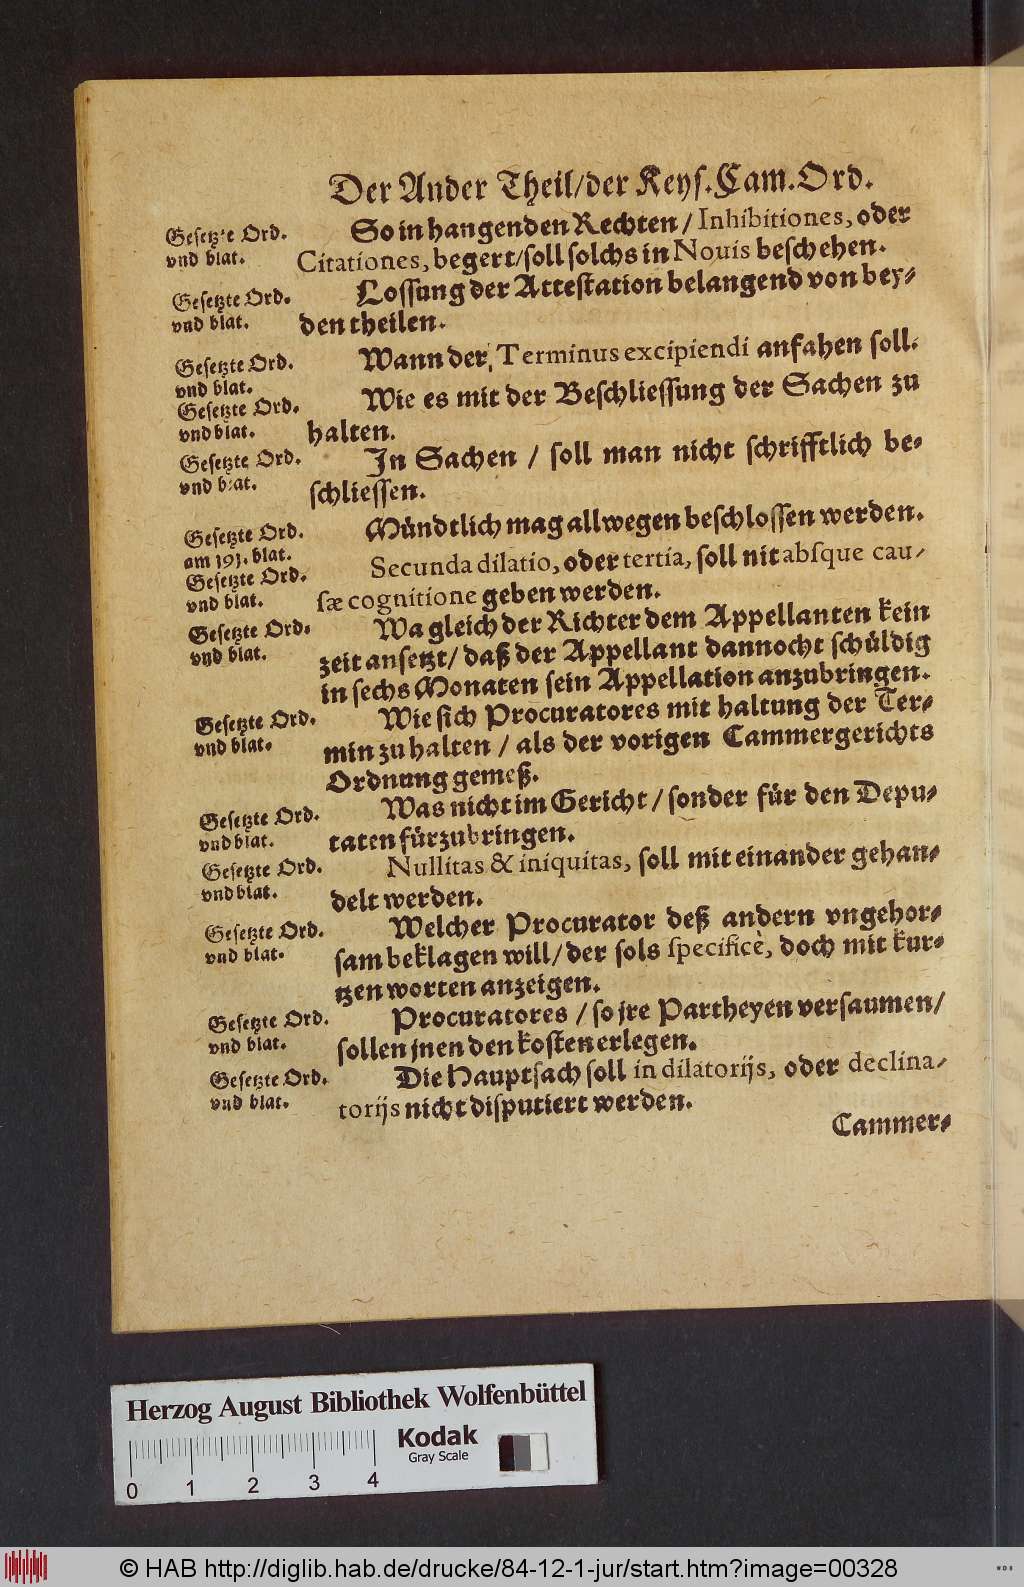 Der Ander Theil/der Keys. Cam. Ord.
Gesetzte Ord.
vnd blat.
So in hangenden Rechten / Inhibitiones, oder
Citationes, begert/soll solchs in Nouis beschehen.
Gesetzte Ord.
vnd blat.
Lossung der Attestation belangend von bey-
den theilen.
Gesetzte Ord.
vnd blat.
Wann der, Terminus excipiendi anfahen soll.
Gesetzte Ord.
vnd blat.
Wie es mit der Beschliessung der Sachen zu
halten.
Gesetzte Ord.
vnd blat.
In Sachen / soll man nicht schrifftlich be-
schliessen.
Gesetzte Ord.
am 191. blat.
Mündtlich mag allwegen beschlossen werden.
Gesetzte Ord.
vnd blat.
Secunda dilatio, oder tertia, soll nit absque cau-
sæ cognitione geben werden.
Gesetzte Ord.
vnd blat.
Wa gleich der Richter dem Appellanten kein
zeit ansetzt/ daß der Appellant dannocht schüldig
in sechs Monaten sein Appellation anzubringen.
Gesetzte Ord.
vnd blat.
Wie sich Procuratores mit haltung der Ter-
min zu halten / als der vorigen Cammergerichts
Ordnung gemeß.
Gesetzte Ord.
vnd blat.
Was nicht im Gericht / sonder für den Depu-
taten fürzubringen.
Gesetzte Ord.
vnd blat.
Nullitas & iniquitas, soll mit einander gehan-
delt werden.
Gesetzte Ord.
vnd blat.
Welcher Procurator deß andern vngehor-
sam beklagen will/der sols specificè, doch mit kur-
tzen worten anzeigen.
Gesetzte Ord.
vnd blat.
Procuratores / so jre Partheyen versaumen/
sollen jnen den kosten erlegen.
Gesetzte Ord.
vnd blat.
Die Hauptsach soll in dilatorijs, oder declina-
torijs nicht disputiert werden.
Cammer-
Herzog August Bibliothek Wolfenbüttel
Kodak
Gray Scale
0 1 2 3 4
© HAB http://diglib.hab.de/drucke/84-12-1-jur/start.htm?image=00328